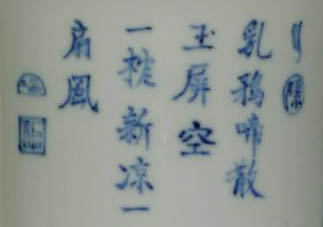 乳鴉啼散
玉屏空
一枕新凉一
扇風